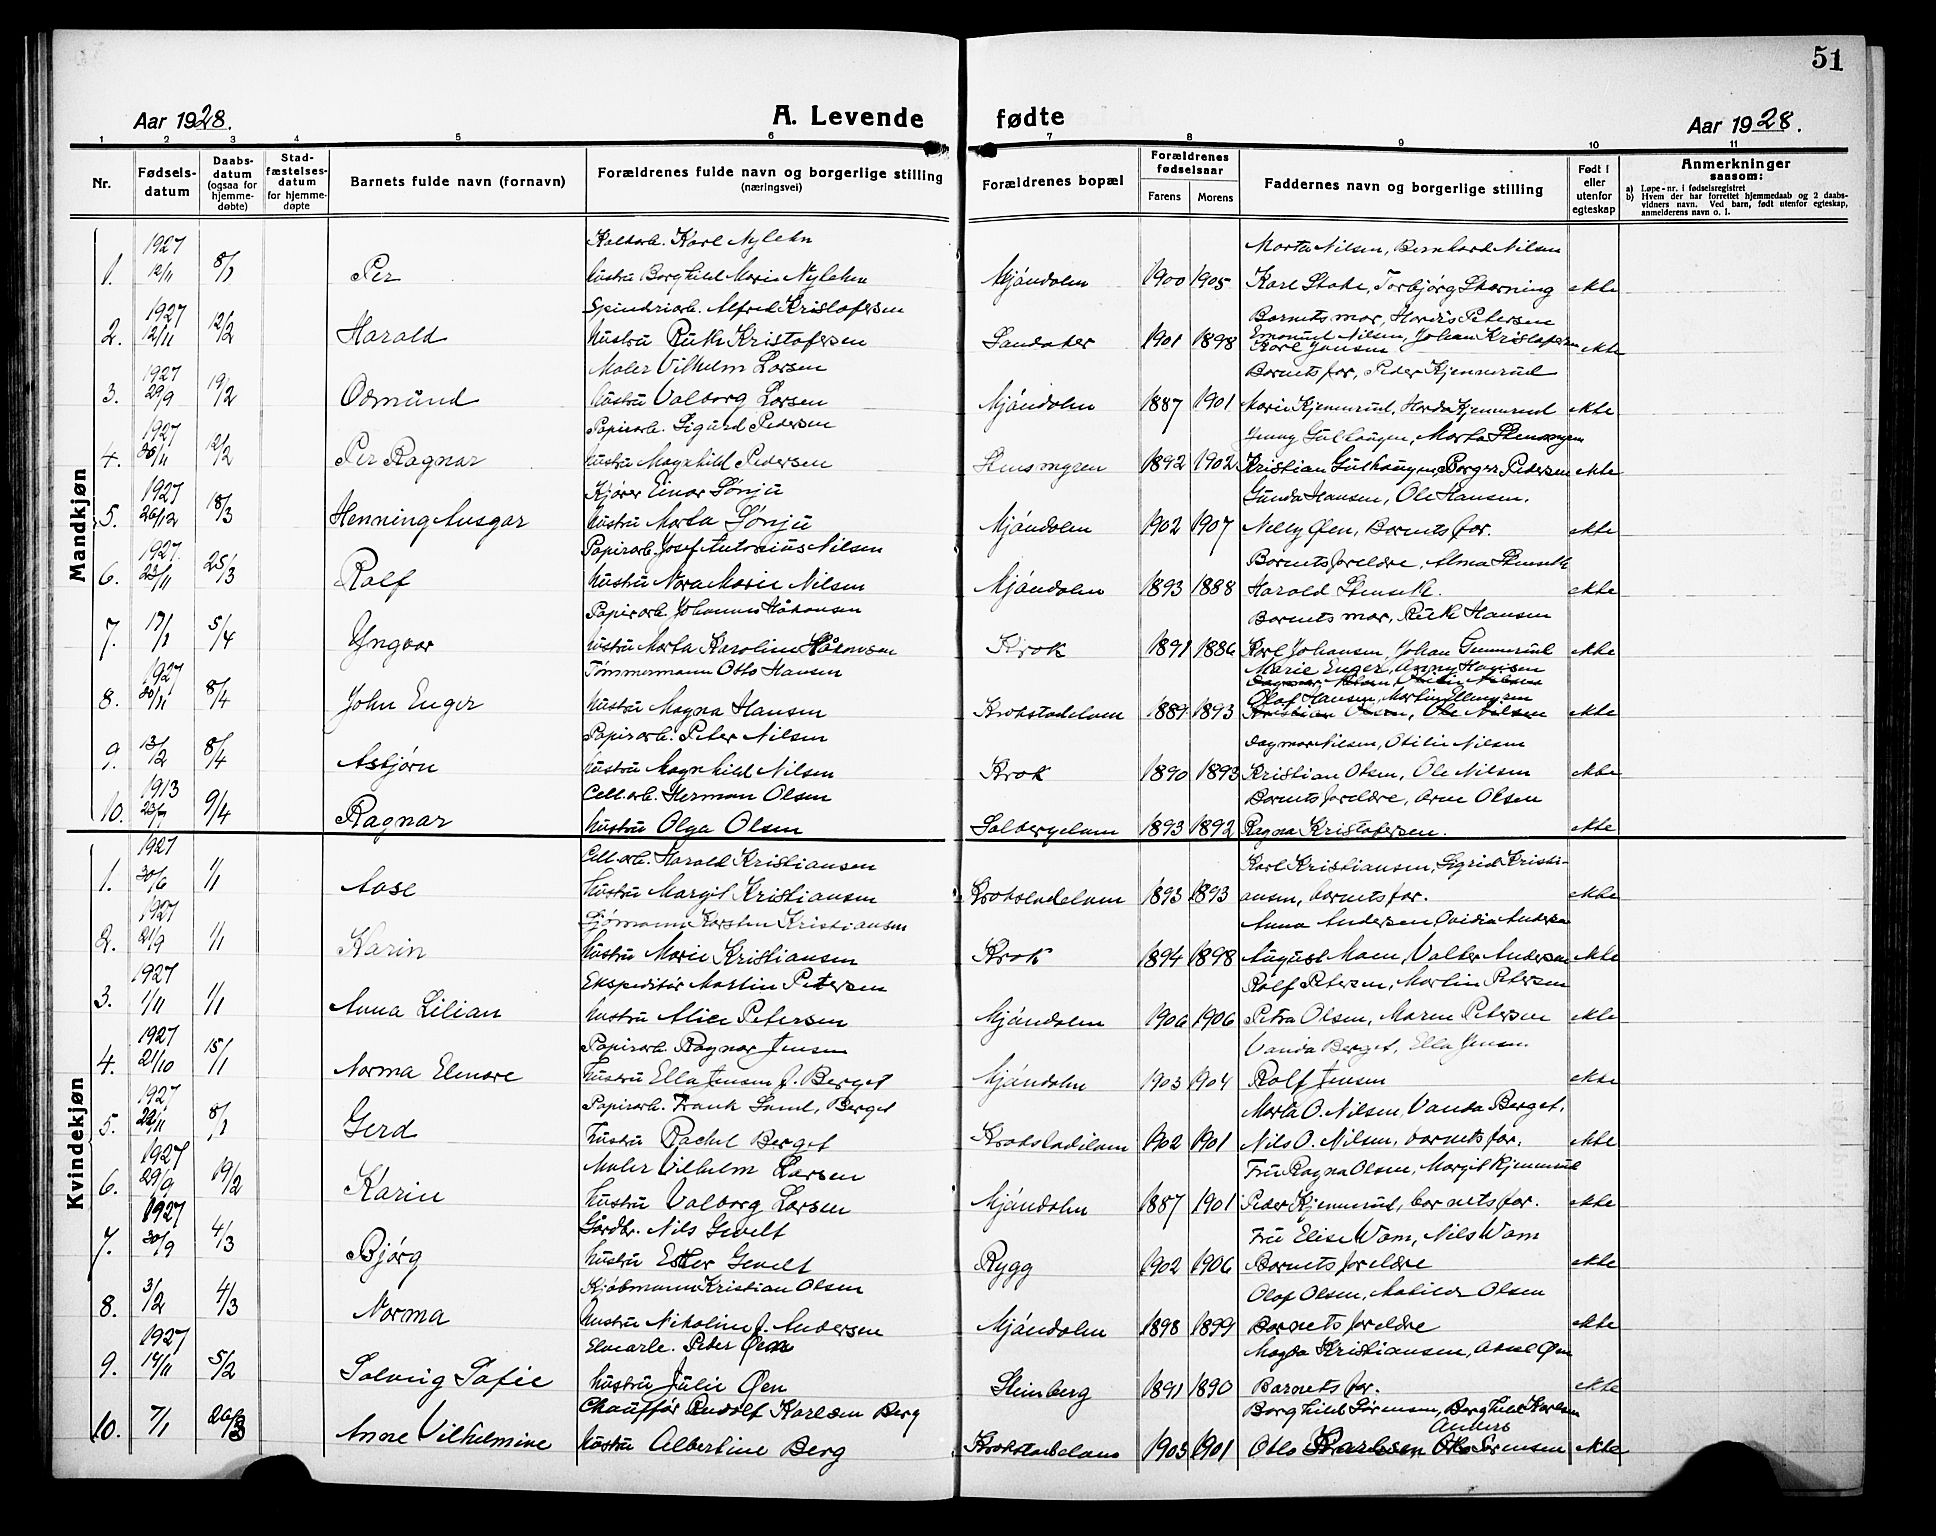 51
Aar 1928.
A. Levende
fødte
Aar 1928.
1 2 3 4 5 6 7 8 9 10 11
Nr.
Fødsels-
datum
Daabs-
datum
(ogsaa for
hjemme-
døbte)
Stad-
fæstelses-
datum
for hjemme-
døpte
Barnets fulde navn (fornavn)
Forældrenes fulde navn og borgerlige stilling
(næringsvei)
Forældrenes bopæl
Forældrenes
fødselsaar
Farens Morens
Faddernes navn og borgerlige stilling
Født i
eller
utenfor
egteskap
Anmerkninger
saasom:
a) Løpe-nr. i fødselsregistret
b) Hvem der har forrettet hjemmedaab og 2 daabs-
vidners navn. Ved barn, født utenfor egteskap,
anmelderens navn o. l.
Mandkjøn
1927 Marta Nilsen, Bernhard Nilsen
1. 12/11 8/1 Per Hustru Borghild Marie Mjøndalen 1900 1905 Karl Torbjørg ekte
1927 Alfred Kristofersen Barnets mor, Hordis Petersen
Emanuel Nilsen, Johan Kristofersen
2. 12/11 12/2 Harald Hustru Ruth Kristofersen Sandaker 1901 1898 Karl Jansen ekte
1927 Maler Vilhelm Larsen Barnets far, Peder Kjennerud
3. 29/9 19/2 Odmund hustru Valborg Larsen Mjøndalen 1887 1901 Marie Kjennerud, Kjennerud ekte
1927 Papirarb. Sigurd Pedersen Jenny Gulhaugen, Marta Stensmyren
4. 12/2 Per Ragnar hustru Magnhild Pedersen Stensmyren 1892 1902 Kristian Gulhaugen, Borger Pedersen ekte
1927 Kjører Einar Sønju Gunda Hansen, Ole Hansen.
5. 26/12 18/3 Henning Ansgar hustru Marta Sønju Mjøndalen 1902 1907 Nelly Øen, Barnets far. ekte
1927. Papirarb. Josef Antonius Nilsen Barnets foreldre, Alma
6. 23/11 25/3 Rolf hustru Nora Marie Nilsen Mjøndalen 1893 1888 Harald ekte
Papirarb. Johannes Håkonsen Barnets mor, Ruth Hansen
7. 5/4 Yngvar hustru Marta Karoline Håkonsen Krok 1891 1886 Karl Johansen, Johan Gunnerud ekte
1927 Tømmermann Otto Hansen Marie Enger, Anny Hansen
Dagmar Nilsen, Otilie Nilsen
Olaf Hansen, Martin
8. 30/11 8/4 John Enger hustru Magna Hansen Krokstadelven 1889 1893 Kristian Olsen, Ole Nilsen ekte
Papirarb. Peter Nilsen Dagmar Nilsen, Otilie Nilsen
9. 13/2 8/4 Asbjørn hustru Magnhild Nilsen Krok 1890 1893 Kristian Olsen, Ole Nilsen ekte
1913 Cell.arb. Herman Olsen Barnets foreldre, Arne Olsen
10. 9/4 Ragnar hustru Olga Olsen Solbergelven 1893 1892 Ragna Kristofersen. ekte
Kvindekjøn
1927 Cell.arb. Harald Kristiansen Karl Kristiansen, Sigrid Kristi-
1. 30/6 1/1 Aase hustru Margit Kristiansen Krokstadelven 1893 1893 ansen, barnets far. ekte
1927 Sjømann Karsten Kristiansen Anna Andersen Ovidia Andersen
2. 21/9 1/1 Karin hustru Marie Kristiansen Krok 1894 1898 August Moen, Valter Andersen ekte
1927 Ekspeditør Martin Petersen Rolf Petersen, Martin Petersen
3. 1/11 1/1 Anna Lilian hustru Alice Petersen Mjøndalen 1906 1906 Petra Olsen, Maren Petersen ekte
1927 Papirarb. Ragnar Jensen Vanda Berget, Ella Jensen.
4. 21/10 15/1 Norma Elenore hustru Ella Jensen f. Berget Mjøndalen 1903 1904 Rolf Jensen ekte
1927 Papirarb. Frank Saml. Berget Marta O. Nilsen, Vanda Berget,
5. 8/1 Gerd hustru Rachel Berget Krokstadelven 1902 1901 Nils O. Nilsen, barnets far. ekte
1927 Maler Vilhelm Larsen Fru Ragna Olsen, Margit Kjennerud
6. 29/9 19/2 Karin hustru Valborg Larsen Mjøndalen 1887 1901 Peder Kjennerud, barnets far. ekte
1927 Gårdbr. Nils Gevelt Fru Elise Wam, Nils Wam
7. 30/9 4/3 Bjørg hustru Ester Gevelt Rygg 1902 1906 Barnets foreldre ekte
Kjøbmann Kristian Olsen Olaf Olsen, Matilde Olsen
8. 3/2 4/3 Norma hustru Nikoline f. Andersen Mjøndalen 1898 1899 Barnets foreldre ekte
1927 Peder Øen Magda Kristiansen, Øen
9. 14/11 5/2 Solveig Sofie hustru Julie Øen Steinberg 1891 1890 Barnets far. ekte
Chauffør Rudolf Karlsen Berg Borghild Sørensen, Borghild Karlsen
Anders
10. 7/1 26/3 Anne Vilhelmine hustru Albertine Berg Krokstadelven 1903 1901 Otto Karlsen, Sørensen ekte